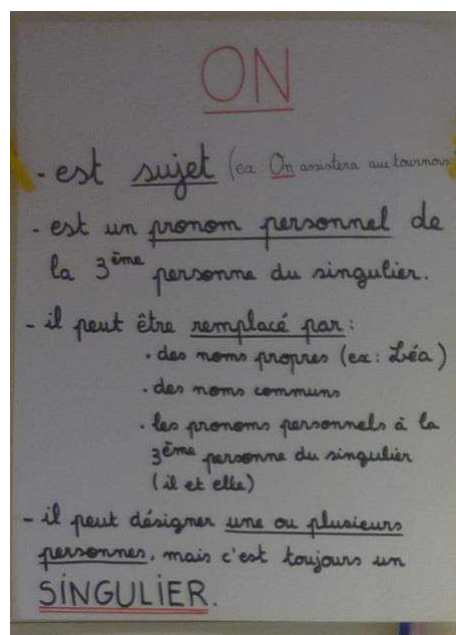 ON
- est sujet (ex : On assistera aux tournois
- est un pronom personnel de
la 3ème personne du singulier.
- il peut être remplacé par :
. des noms propres (ex : Léa)
. des noms communs
. les pronoms personnels à la
3ème personne du singulier
(il et elle)
- il peut désigner une ou plusieurs
personnes, mais c'est toujours un
SINGULIER.